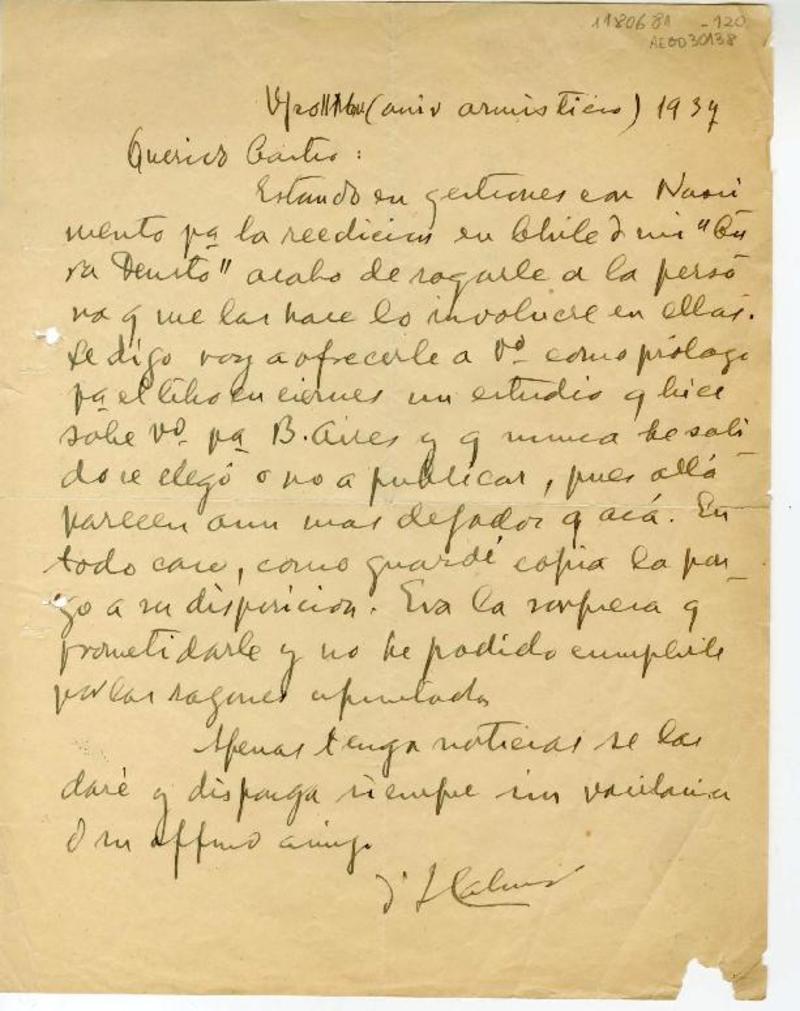 1180681 -120
AEOD30138
Vpso 11 Nbre (aniv armisticio) 1937
Querido Castro:
Estando en gestiones con Nasci
mento pa la reedicion en Chile d mi "Cu
ra Deusto" acabo de rogarle a la perso
na q me las hace lo involucre en ellas.
Le digo voy a ofrecerle a Vd como prólogo
pa el libro en ciernes un estudio q hice
sobe Vd pa B. Aires y q nunca he sabi
do se llegó o no a publicar, pues allá
parecen aun mas dejados q acá. En
todo caso, como guardé copia la pon
go a su disposicion. Era la sorpresa q
prometi darle y no he podido cumplirle
por las razones apuntadas
Apenas tenga noticias se las
daré y disponga siempre sin vacilacion
d su affmo amigo
d'Halmar